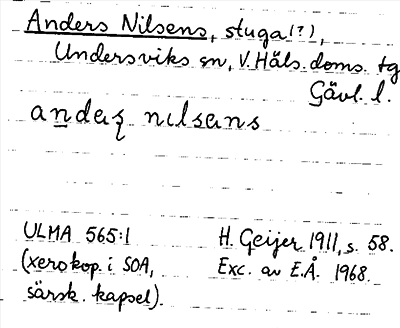 Anders Nilsens, stuga(?),
Undersviks sn, V. Häls. doms. tg
Gävl. l.
andaʂ nɪlsens
ULMA 565:1
(xerokop. i SOA,
särsk. kapsel).
H. Geijer 1911, s. 58.
Exc. av E.Å. 1968.